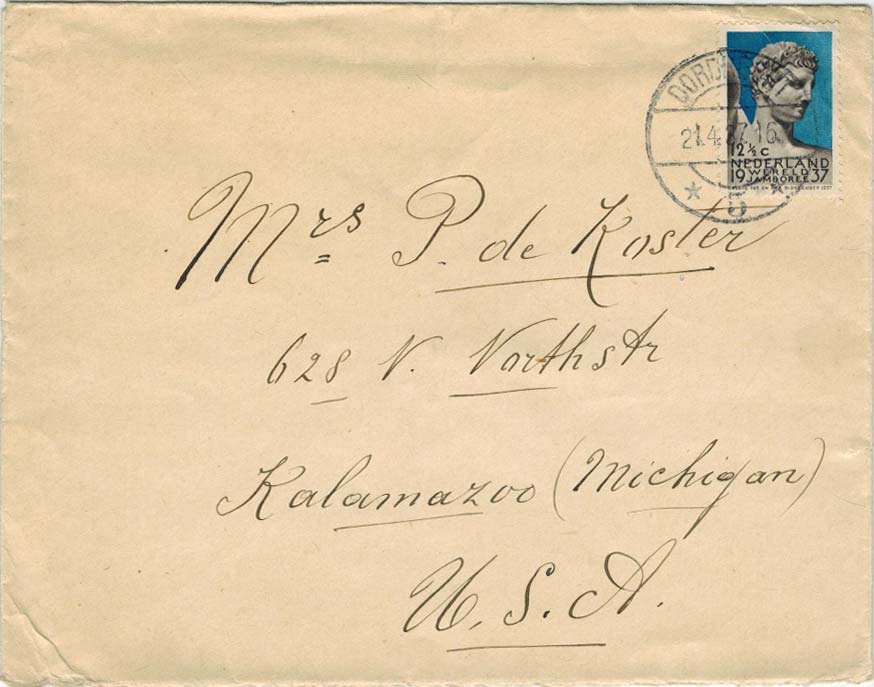 DORD
21.4.37.16
5
12½ C
NEDERLAND
19 WERELD 37
JAMBOREE
Mrs P. de Koster
628 N. Northstr
Kalamazoo (Michigan)
U.S.A.